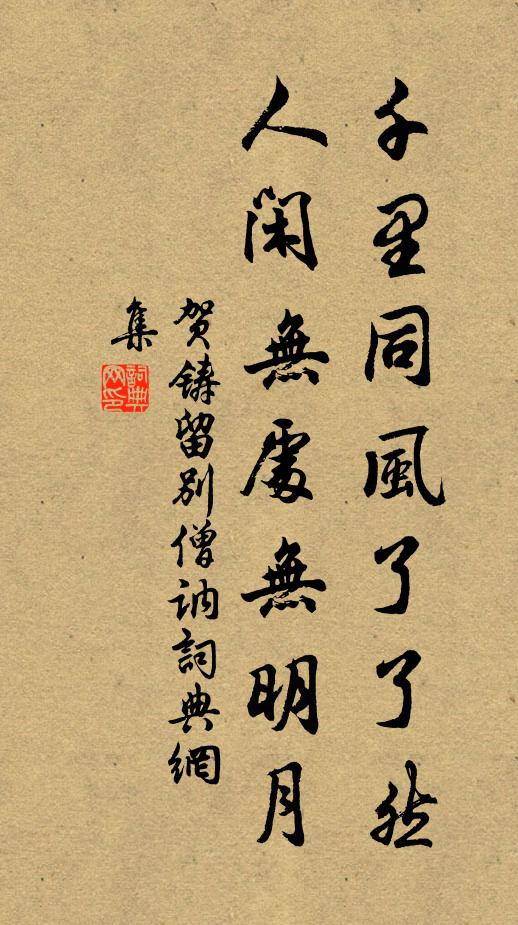 千里同風了了然
人閑無處無明月
賀鑄留別僧訥詞典網
集
詞典網印